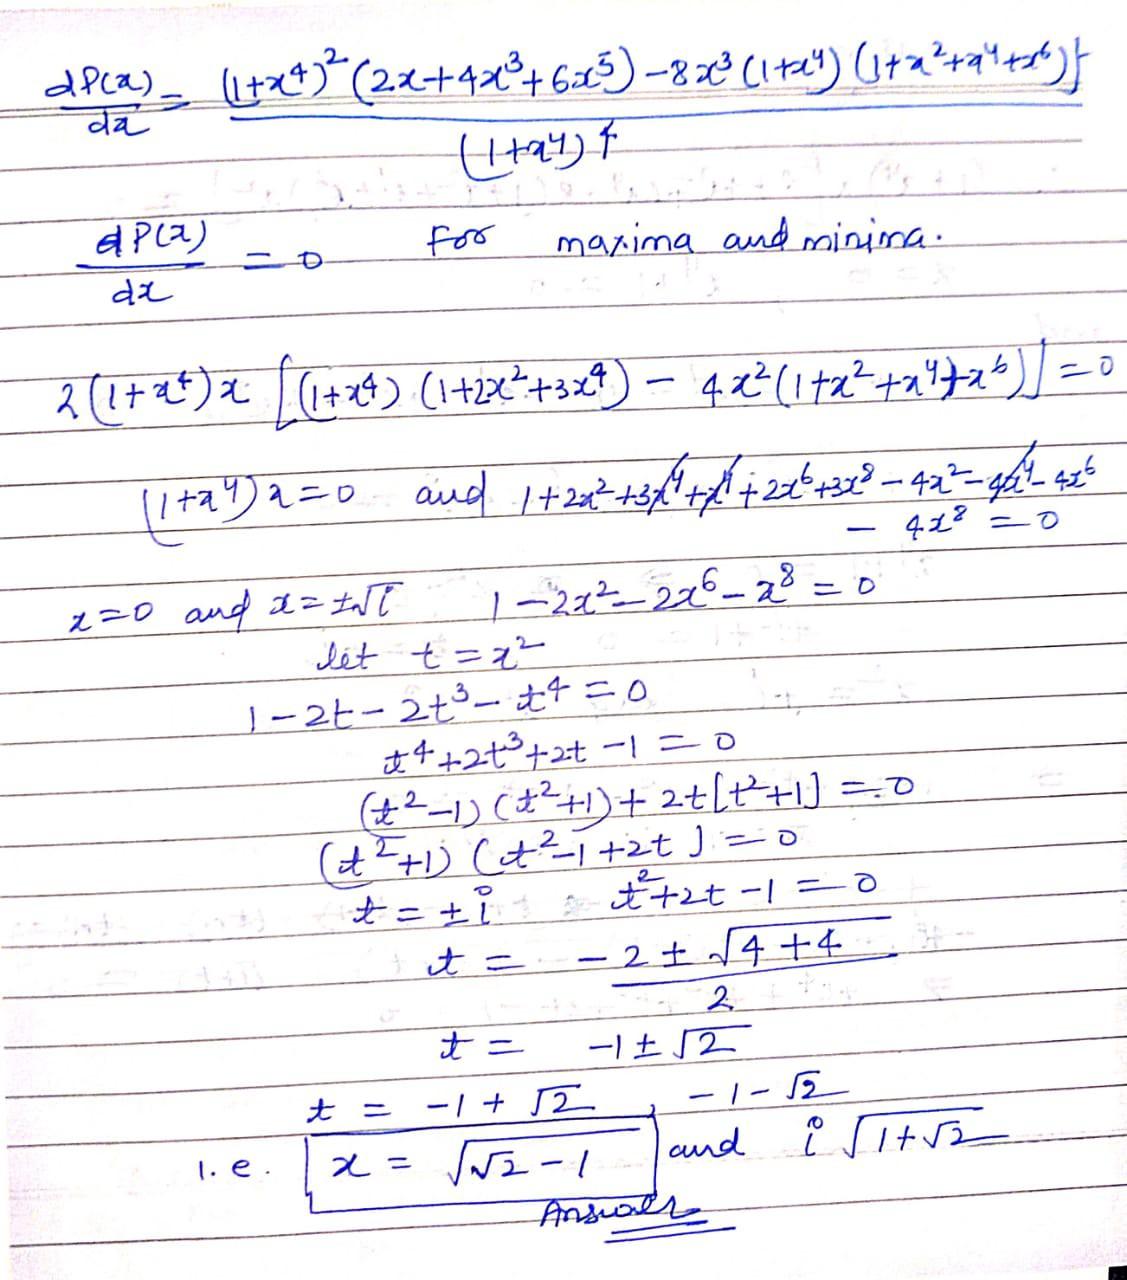 dP(x)/dx = (1+x⁴)² (2x+4x³+6x⁵) – 8x³ (1+x⁴) (1+x²+x⁴+x⁶)} / (1+x⁴)⁴
dP(x)/dx = 0 for maxima and minima.
2(1+x⁴)x [(1+x⁴) (1+2x²+3x⁴) – 4x²(1+x²+x⁴+x⁶)] = 0
(1+x⁴)x=0 and 1+2x²+3x⁴+x⁴+2x⁶+3x⁸–4x²–4x⁴–4x⁶
– 4x⁸ = 0
x=0 and x=±√i 1–2x²–2x⁶–x⁸ = 0
let t = x²
1–2t–2t³–t⁴ = 0
t⁴+2t³+2t–1 = 0
(t²–1) (t²+1) + 2t[t²+1] = 0
(t²+1) (t²–1+2t) = 0
t = ±i t²+2t–1 = 0
t = –2 ± √4+4 / 2
t = –1±√2
t = –1+√2, –1–√2
i.e. x = √√2–1 and i√1+√2
Answer